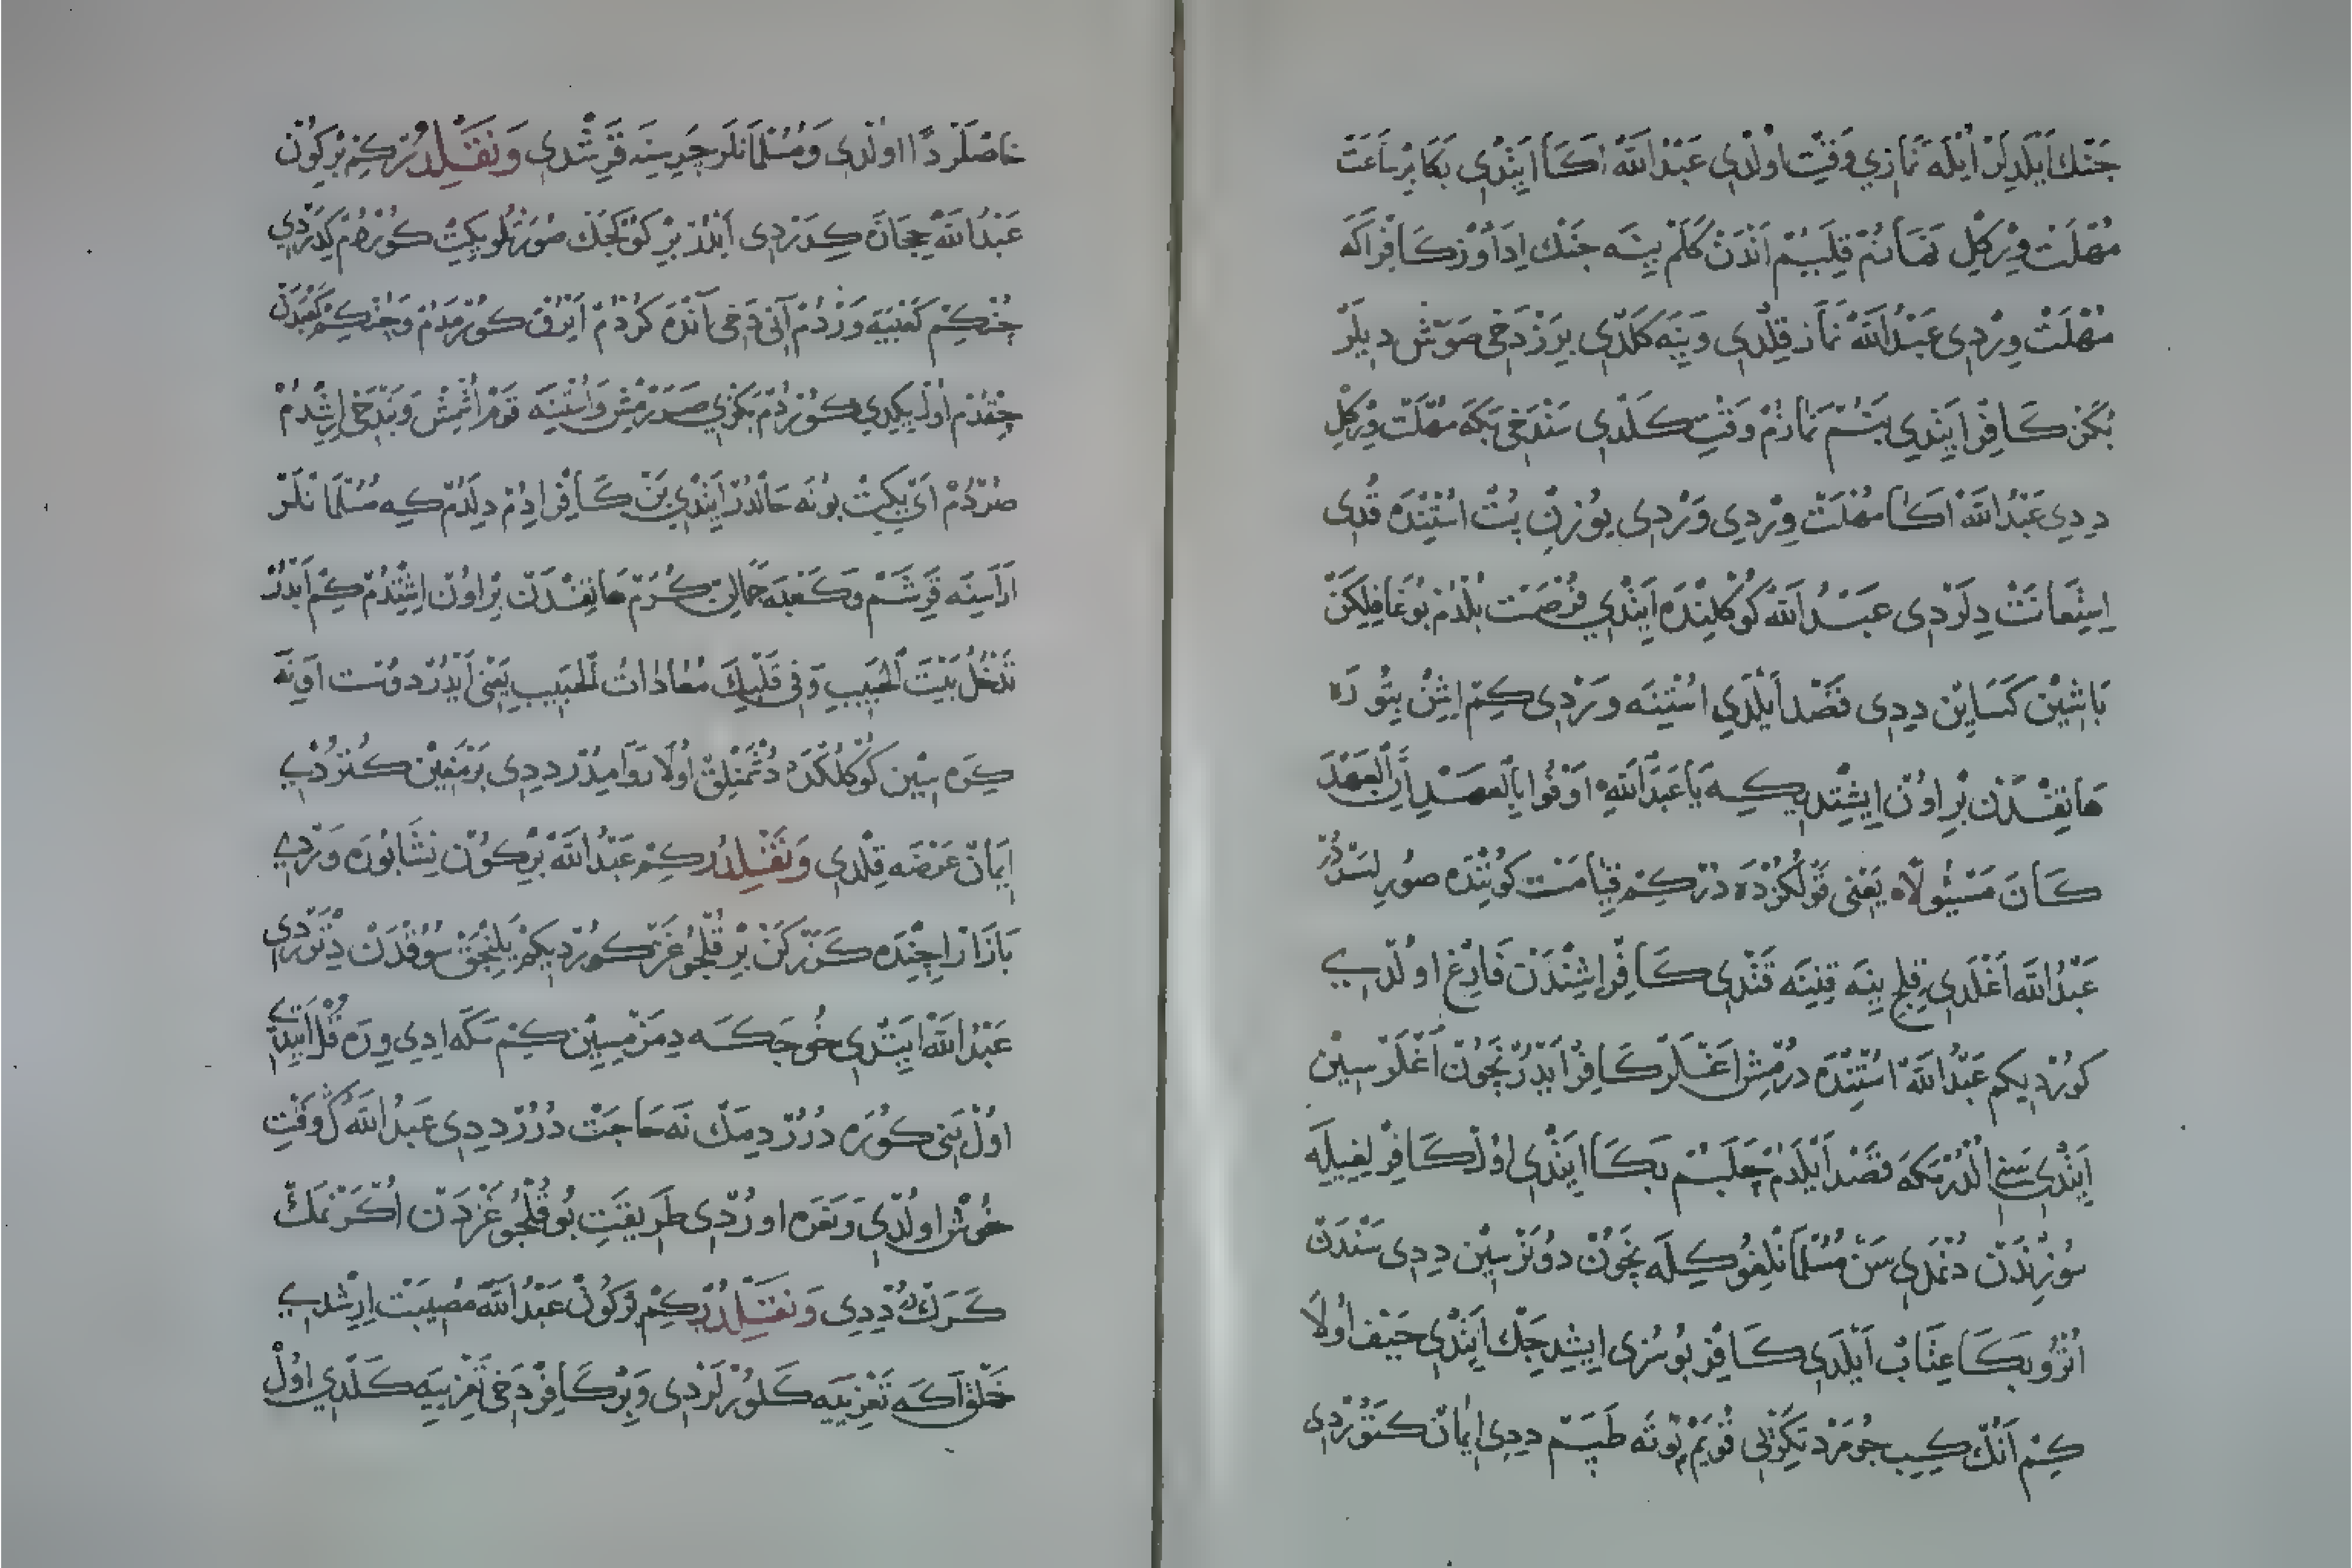 جَنْك اَيْلَدِلَرْ اُيْلَه نَمَازِي وَقْتِ اوُلْدِي عَبْدُ اللّٰه اَكَا اَيِتْدِي بَكَا بِرْ سَاعَتْ
مُهْلَتْ وِيرْكِلْ نَمَازُمْ قِلَيِمْ اَنْدَنْ كَلَمْ يِنَه جَنْك اِدَا وُزْ كَافِرْ اَكَه
مُهْلَتْ وِرْدِي عَبْدُ اللّٰه نَمَازْ قِلْدِي وَيِنَه كَلْدِي بِرَزْ دَخِي صَوَشْ دِيلَرْ
بُكَزْ كَافِرْ اَيِتْدِي بَنُمْ نَمَازُمْ وَقْتِ كَلْدِي سَنْدَخِي بَكَه مُهْلَتْ وِرْكِلْ
دِدِي عَبْدُ اللّٰه اَكَا مُهْلَتْ وِرْدِي وَرْدِي يوُزِنْ بُتْ اُسْتِنْدَه قُدِي
اِسْتِعَانَتْ دِلَرْدِي عَبْدُ اللّٰه كُوكْلِنْدَه اَيِتْدِي فُرْصَتْ بُلْدُمْ بُو غَافِلِكَنْ
بَاشِيْنْ كَسَايِنْ دِدِي قَصْد اَيْلَدِي اُسْتِنَه وَرْدِي كِمْ اِشِنْ بِتُورَه
هَاتِفْدَنْ بِرْ اوُنْ اِيشِتْدِيكِه يَا عَبْدَ اللّٰهِ اَوْفُوا بِالْعَهْدِ اِنَّ الْعَهْدَ
كَانَ مَسْئُولًا يَعْنِي قَوْلُكُزْدَه دُرْكِمْ قِيَامَتْ كُونِنْدَه صُورِلِسَرْدُرْ
عَبْدُ اللّٰه اَغْلَدِي قِلِجْ يِنَه قِنِنَه قَنْدِي كَافِرْ اِشِنْدَنْ فَارِغْ اوُلْدِي
كُورْدِيكِمْ عَبْدُ اللّٰه اُسْتِنْدَه دُرْمِشْ اَغْلَرْ كَافِرْ اَيْدُرْ نِچُونْ اَغْلَرْسِيْنْ
اَيِتْدِي سَنِي اُلْدُرْمَكَه قَصْد اَيْلَدُمْ چَلَبُمْ بَكَا اَيِتْدِي اوُلْ كَافِرْلِغِيلَه
سُوزِنْدَنْ دُنْمَدِي سَنْ مُسُلْمَانْلِغُوكِلَه نِچُونْ دُونَرْسِيْنْ دِدِي سَنْدَنْ
اُتْرُو بَكَا عِتَابْ اَيْلَدِي كَافِرْ بُو سُزِي اِيشِدِجَكْ اَيِتْدِي حَيْف اوُلَا
كِمْ اَنُكْ كِيبِ جُومَرْد تَكْرِيِي قُويَمْ بُوتَه طَپَمْ دِدِي اِيمَانْ كَتُورْدِي
خَاصْلَرْدَا اوُلْدِي وَمُسُلْمَانْلَرْ جَرِسِنَه قَرِشْدِي وَنَقْلِدُرْ كِمْ بِرْكُونْ
عَبْدُ اللّٰه حِجَازَه كِدَرْدِي اَيْدُرْ بِرْ كُوكْجَكْ صُورَتْلُو يِكِتْ كُورْدُمْ كِدَرْدِي
چُنْكِمْ كَعْبَيَه وَرْدُمْ اَنِي دَخِي اَنْدَه كُرْدُمْ اَيْرُقْ كُورْمَدُمْ وَچُنْكِمْ كَعْبَدَنْ
چِقْدُمْ اوُلْ يِكِدِي كُورْدُمْ بَكْزِي صَرَرْمِشْ وَاُسْتِنَه قَوْمْ اُشْمِشْ وَبَنْدَخِي اِرِشْدُمْ
صُرْدُمْ اَيْ يِكِتْ بُو نَه حَالْدُرْ اَيِتْدِي بَنْ كَافِرْ اِدُمْ دِلَدُمْ كِه مُسُلْمَانْلَرْ
اَرَاسِنَه قَرِشَمْ وَكَعْبَه جَمَالِنْ كُرَمْ هَاتِفْدَنْ بِرْ اوُنْ اِشِتْدُمْ كِمْ اَيْدُرْ
تَدْخُلُ بَيْتَ الْحَبِيبِ وَفِي قَلْبِكَ مُعَادَاتُ الْحَبِيبِ يَعْنِي اَيْدُرْ دوُسْت اَوِنَه
كِرَه سِيْنْ كُوكْلُكْدَه دُشْمَنْلِقْ اوُلَا رَوَا مِدُرْ دِدِي بَرْمَغِينْ كُتُرْدِي
اِيمَانْ عَرْضَه قِلْدِي وَنَقْلِدُرْ كِمْ عَبْدُ اللّٰه بِرْكُونْ نِشَابُورَه وَرْدِي
بَازَارْ اِچِنْدَه كَزَرْكَنْ بِرْ قُلْجُوغَزْ كُورْدِيكِمْ يَلِنْجَقْ سُوقْدَنْ دِتْرَرْدِي
عَبْدُ اللّٰه اَيِتْدِي خُوجَكَه دِمَزْمِسِيْنْ كِمْ سَكَه اِدِي وِرَه قُلْ اَيِتْدِي
اوُلْ بَنِي كُورَه دُرُرْ دِمَكْ نَه حَاجَتْ دُرُرْ دِدِي عَبْدُ اللّٰه كْ وَقْتِ
خُوشْ اوُلْدِي وَنَعْرَه اوُرْدِي طَرِيقَتِ بُو قُلْجُوغَزْدَنْ اُكْرَنْمَكْ
كَرَكْ دُرْ دِدِي وَنَقْلِدُرْ كِمْ بِرْكُونْ عَبْدُ اللّٰه مُصِيبَتْ اِرِشْدِي
خَلْق اَكَه تَعْزِيَيَه كَلُورْلَرْدِي وَبِرْ كَافِرْ دَخِي تَعْزِيَيَه كَلْدِي اوُلْ